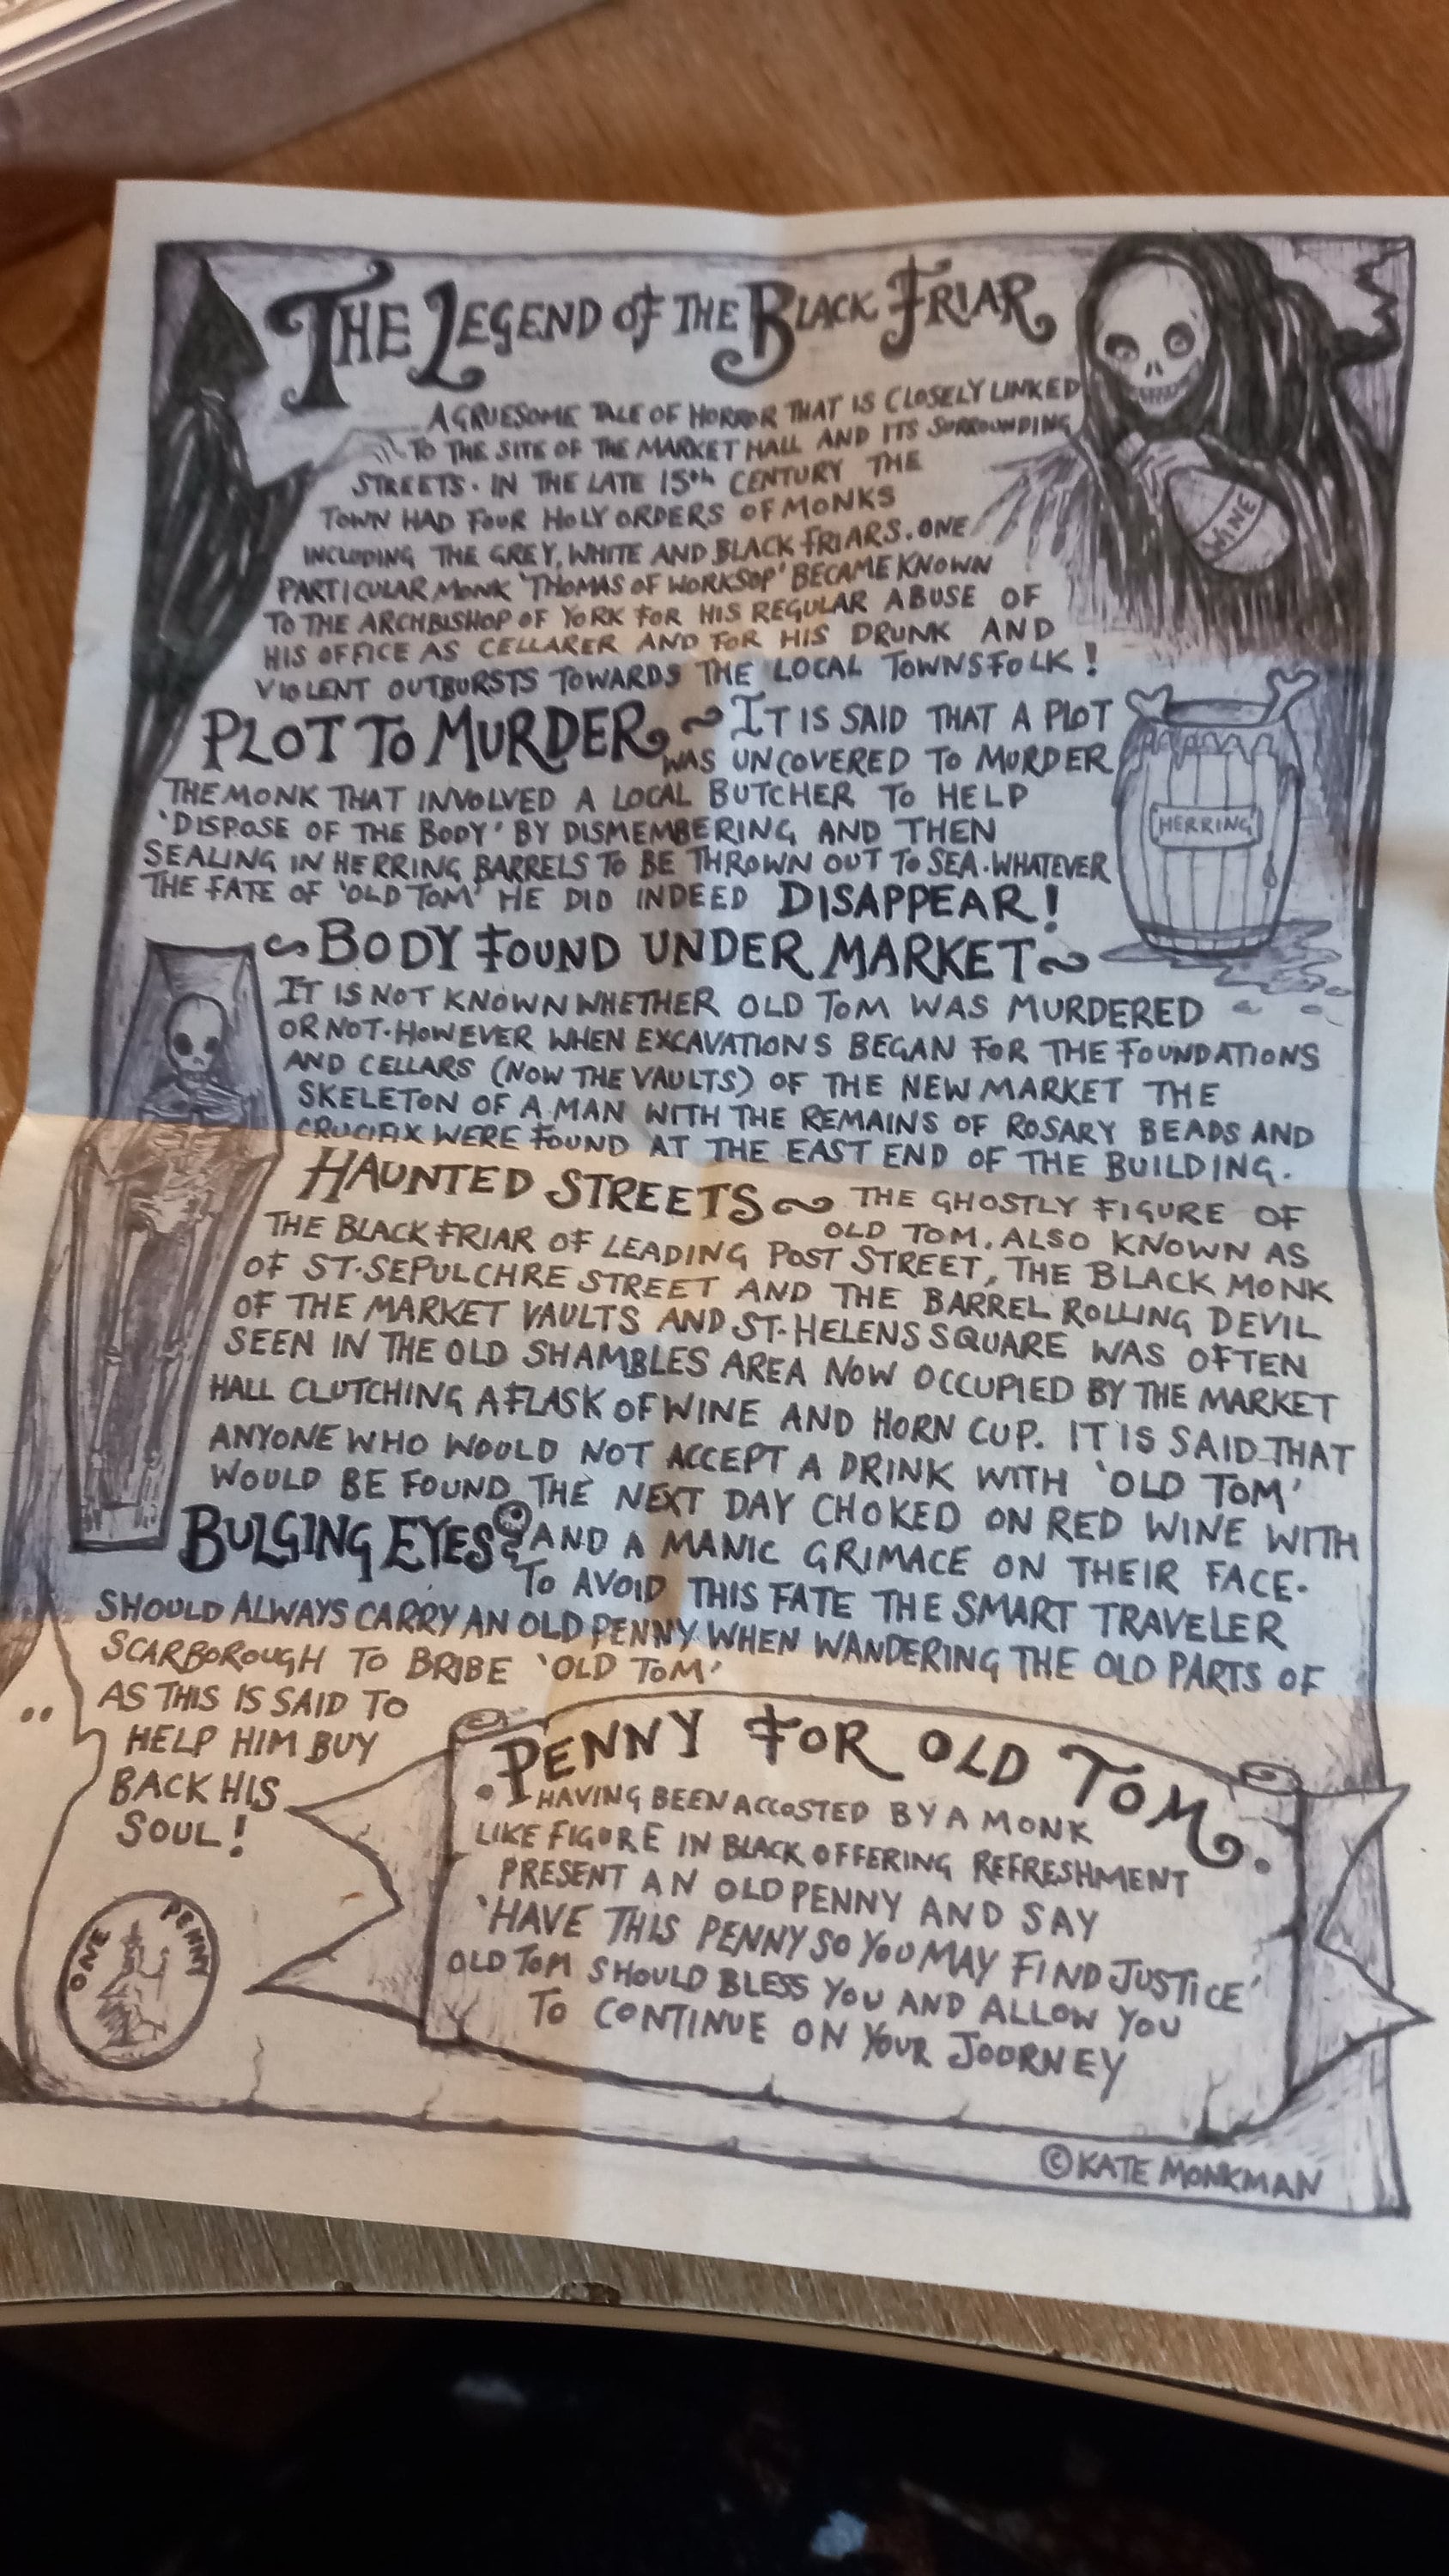 THE LEGEND OF THE BLACK FRIAR
A GRUESOME TALE OF HORROR THAT IS CLOSELY LINKED
TO THE SITE OF THE MARKET HALL AND ITS SURROUNDING
STREETS. IN THE LATE 15th CENTURY THE
TOWN HAD FOUR HOLY ORDERS OF MONKS
INCLUDING THE GREY, WHITE AND BLACK FRIARS. ONE
PARTICULAR MONK 'THOMAS OF WORKSOP' BECAME KNOWN
TO THE ARCHBISHOP OF YORK FOR HIS REGULAR ABUSE OF
HIS OFFICE AS CELLARER AND FOR HIS DRUNK AND
VIOLENT OUTBURSTS TOWARDS THE LOCAL TOWNSFOLK!
WINE
PLOT TO MURDER ~ IT IS SAID THAT A PLOT
WAS UNCOVERED TO MURDER
THE MONK THAT INVOLVED A LOCAL BUTCHER TO HELP
'DISPOSE OF THE BODY' BY DISMEMBERING AND THEN
SEALING IN HERRING BARRELS TO BE THROWN OUT TO SEA. WHATEVER
THE FATE OF 'OLD TOM' HE DID INDEED DISAPPEAR!
HERRING
~ BODY FOUND UNDER MARKET ~
IT IS NOT KNOWN WHETHER OLD TOM WAS MURDERED
OR NOT. HOWEVER WHEN EXCAVATIONS BEGAN FOR THE FOUNDATIONS
AND CELLARS (NOW THE VAULTS) OF THE NEW MARKET THE
SKELETON OF A MAN WITH THE REMAINS OF ROSARY BEADS AND
CRUCIFIX WERE FOUND AT THE EAST END OF THE BUILDING.
HAUNTED STREETS ~ THE GHOSTLY FIGURE OF
OLD TOM, ALSO KNOWN AS
THE BLACK FRIAR OF LEADING POST STREET, THE BLACK MONK
OF ST. SEPULCHRE STREET AND THE BARREL ROLLING DEVIL
OF THE MARKET VAULTS AND ST. HELENS SQUARE WAS OFTEN
SEEN IN THE OLD SHAMBLES AREA NOW OCCUPIED BY THE MARKET
HALL CLUTCHING A FLASK OF WINE AND HORN CUP. IT IS SAID THAT
ANYONE WHO WOULD NOT ACCEPT A DRINK WITH 'OLD TOM'
WOULD BE FOUND THE NEXT DAY CHOKED ON RED WINE WITH
BULGING EYES AND A MANIC GRIMACE ON THEIR FACE.
TO AVOID THIS FATE THE SMART TRAVELER
SHOULD ALWAYS CARRY AN OLD PENNY WHEN WANDERING THE OLD PARTS OF
SCARBOROUGH TO BRIBE 'OLD TOM'
AS THIS IS SAID TO
HELP HIM BUY
BACK HIS
SOUL!
ONE PENNY
PENNY FOR OLD TOM.
HAVING BEEN ACCOSTED BY A MONK
LIKE FIGURE IN BLACK OFFERING REFRESHMENT
PRESENT AN OLD PENNY AND SAY
'HAVE THIS PENNY SO YOU MAY FIND JUSTICE'
OLD TOM SHOULD BLESS YOU AND ALLOW YOU
TO CONTINUE ON YOUR JOURNEY
© KATE MONKMAN